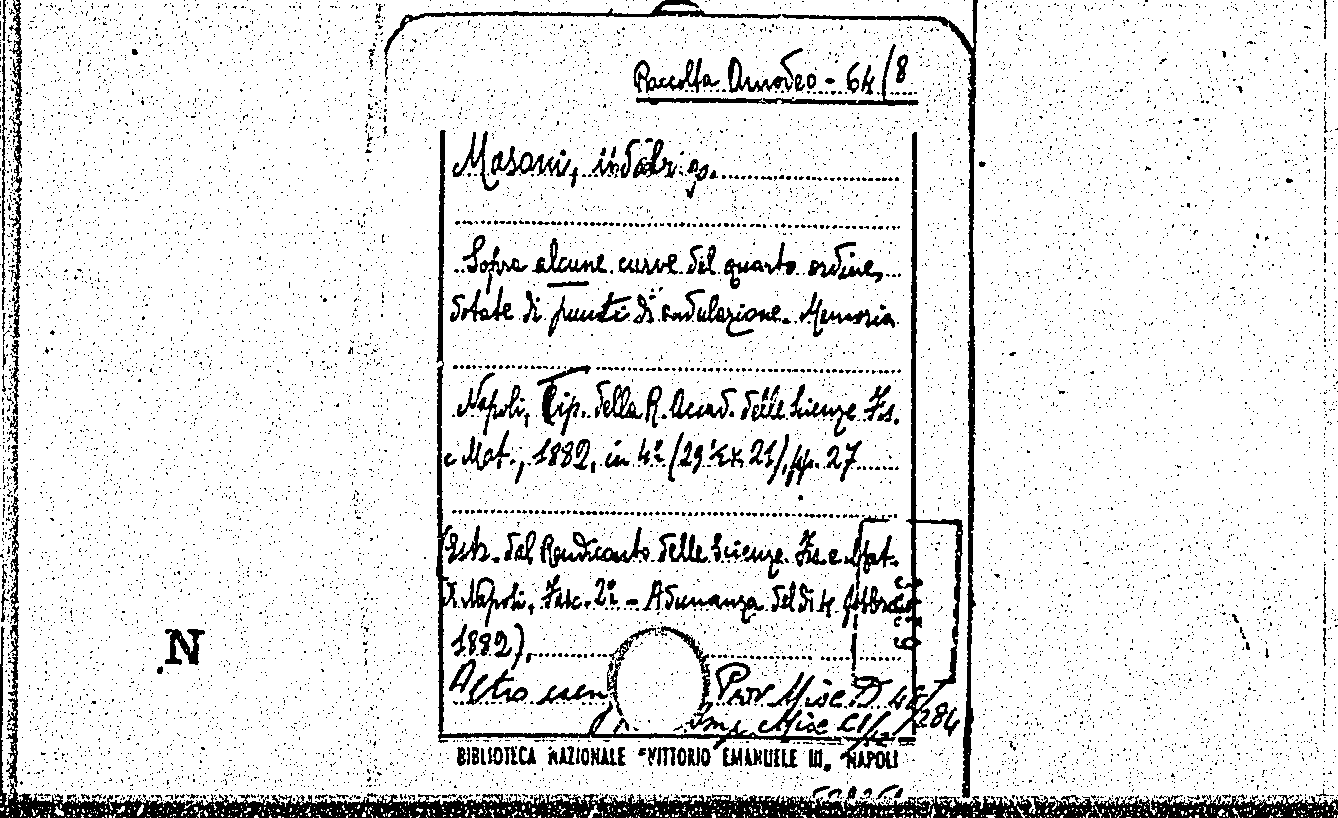 Raccolta Amodeo - 64/8
Masoni,
Sopra alcune curve del quarto ordine,
dotate di punti di ondulazione. Memoria
Napoli, Tip. della R. Accad. delle Scienze Fis.
e Mat., 1882, in 4º (29 21), pp. 27
(Estr. dal Rendiconto delle Scienze Fis. e Mat.
di Napoli, Fasc. 2º - Adunanza del dì 4 febbraio
1882).
Altro esem Prov Misc D 48/
Misc 284
BIBLIOTECA NAZIONALE "VITTORIO EMANUELE III„ NAPOLI
N